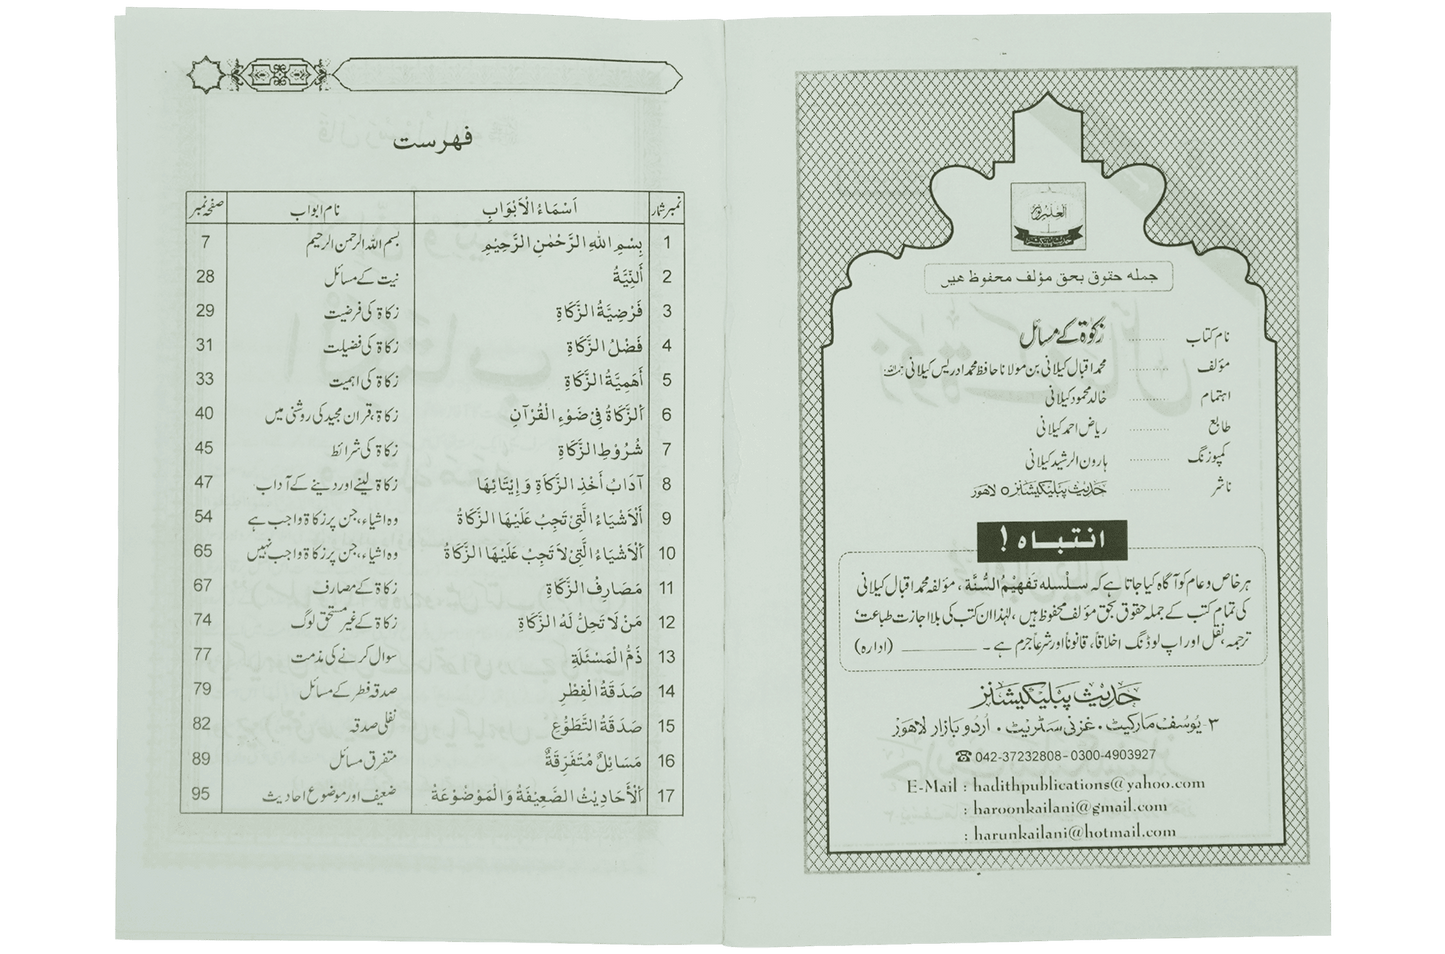 العلم نور
جمله حقوق بحق مؤلف محفوظ هیں
نام کتاب ......... زکوٰۃ کے مسائل
مؤلف ......... محمد اقبال کیلانی بن مولانا حافظ محمد ادریس کیلانی
اہتمام ......... خالد محمود کیلانی
طابع ......... ریاض احمد کیلانی
کمپوزنگ ......... ہارون الرشید کیلانی
ناشر ......... حدیث پبلیکیشنز ٥ لاہور
انتباہ !
ہر خاص و عام کو آگاہ کیا جاتا ہے کہ سلسلہ تفہیم السُّنَّة، مؤلفہ محمد اقبال کیلانی
کی تمام کتب کے جملہ حقوق بحق مؤلف محفوظ ہیں، لہٰذا ان کتب کی بلا اجازت طباعت
ترجمہ، نقل اور اپ لوڈنگ اخلاقاً، قانوناً اور شرعاً جرم ہے۔ ـــــــــــ (ادارہ)
حدیث پبلیکیشنز
۳- یوسف مارکیٹ۔ غزنی سٹریٹ۔ اردو بازار لاہور
☎ 042-37232808 - 0300-4903927
E-Mail : hadithpublications@yahoo.com
: haroonkailani@gmail.com
: harunkailani@hotmail.com
فہرست
نمبر شمار اَسْمَاءُ الْاَبْوَابِ نام ابواب صفحہ نمبر
1 بِسْمِ اللّٰهِ الرَّحْمٰنِ الرَّحِيْمِ بسم اللہ الرحمن الرحیم 7
2 اَلنِّيَّةُ نیت کے مسائل 28
3 فَرْضِيَّةُ الزَّكَاةِ زکاۃ کی فرضیت 29
4 فَضْلُ الزَّكَاةِ زکاۃ کی فضیلت 31
5 أَهَمِيَّةُ الزَّكَاةِ زکاۃ کی اہمیت 33
6 اَلزَّكَاةُ فِيْ ضَوْءِ الْقُرْآنِ زکاۃ، قرآن مجید کی روشنی میں 40
7 شُرُوْطِ الزَّكَاةِ زکاۃ کی شرائط 45
8 آدَابُ أَخْذِ الزَّكَاةِ وَ إِيْتَائِهَا زکاۃ لینے اور دینے کے آداب 47
9 اَلْاَشْيَاءُ الَّتِيْ تَجِبُ عَلَيْهَا الزَّكَاةُ وہ اشیاء، جن پر زکاۃ واجب ہے 54
10 اَلْاَشْيَاءُ الَّتِيْ لَا تَجِبُ عَلَيْهَا الزَّكَاةُ وہ اشیاء، جن پر زکاۃ واجب نہیں 65
11 مَصَارِفِ الزَّكَاةِ زکاۃ کے مصارف 67
12 مَنْ لَا تَحِلُّ لَهُ الزَّكَاةِ زکاۃ کے غیر مستحق لوگ 74
13 ذَمُّ الْمَسْئَلَةِ سوال کرنے کی مذمت 77
14 صَدَقَةُ الْفِطْرِ صدقہ فطر کے مسائل 79
15 صَدَقَةُ التَّطَوُّعِ نفلی صدقہ 82
16 مَسَائِلٌ مُتَفَرِقَةٌ متفرق مسائل 89
17 اَلْأَحَادِيْثُ الضَّعِيْفَةُ وَالْمَوْضُوْعَةُ ضعیف اور موضوع احادیث 95